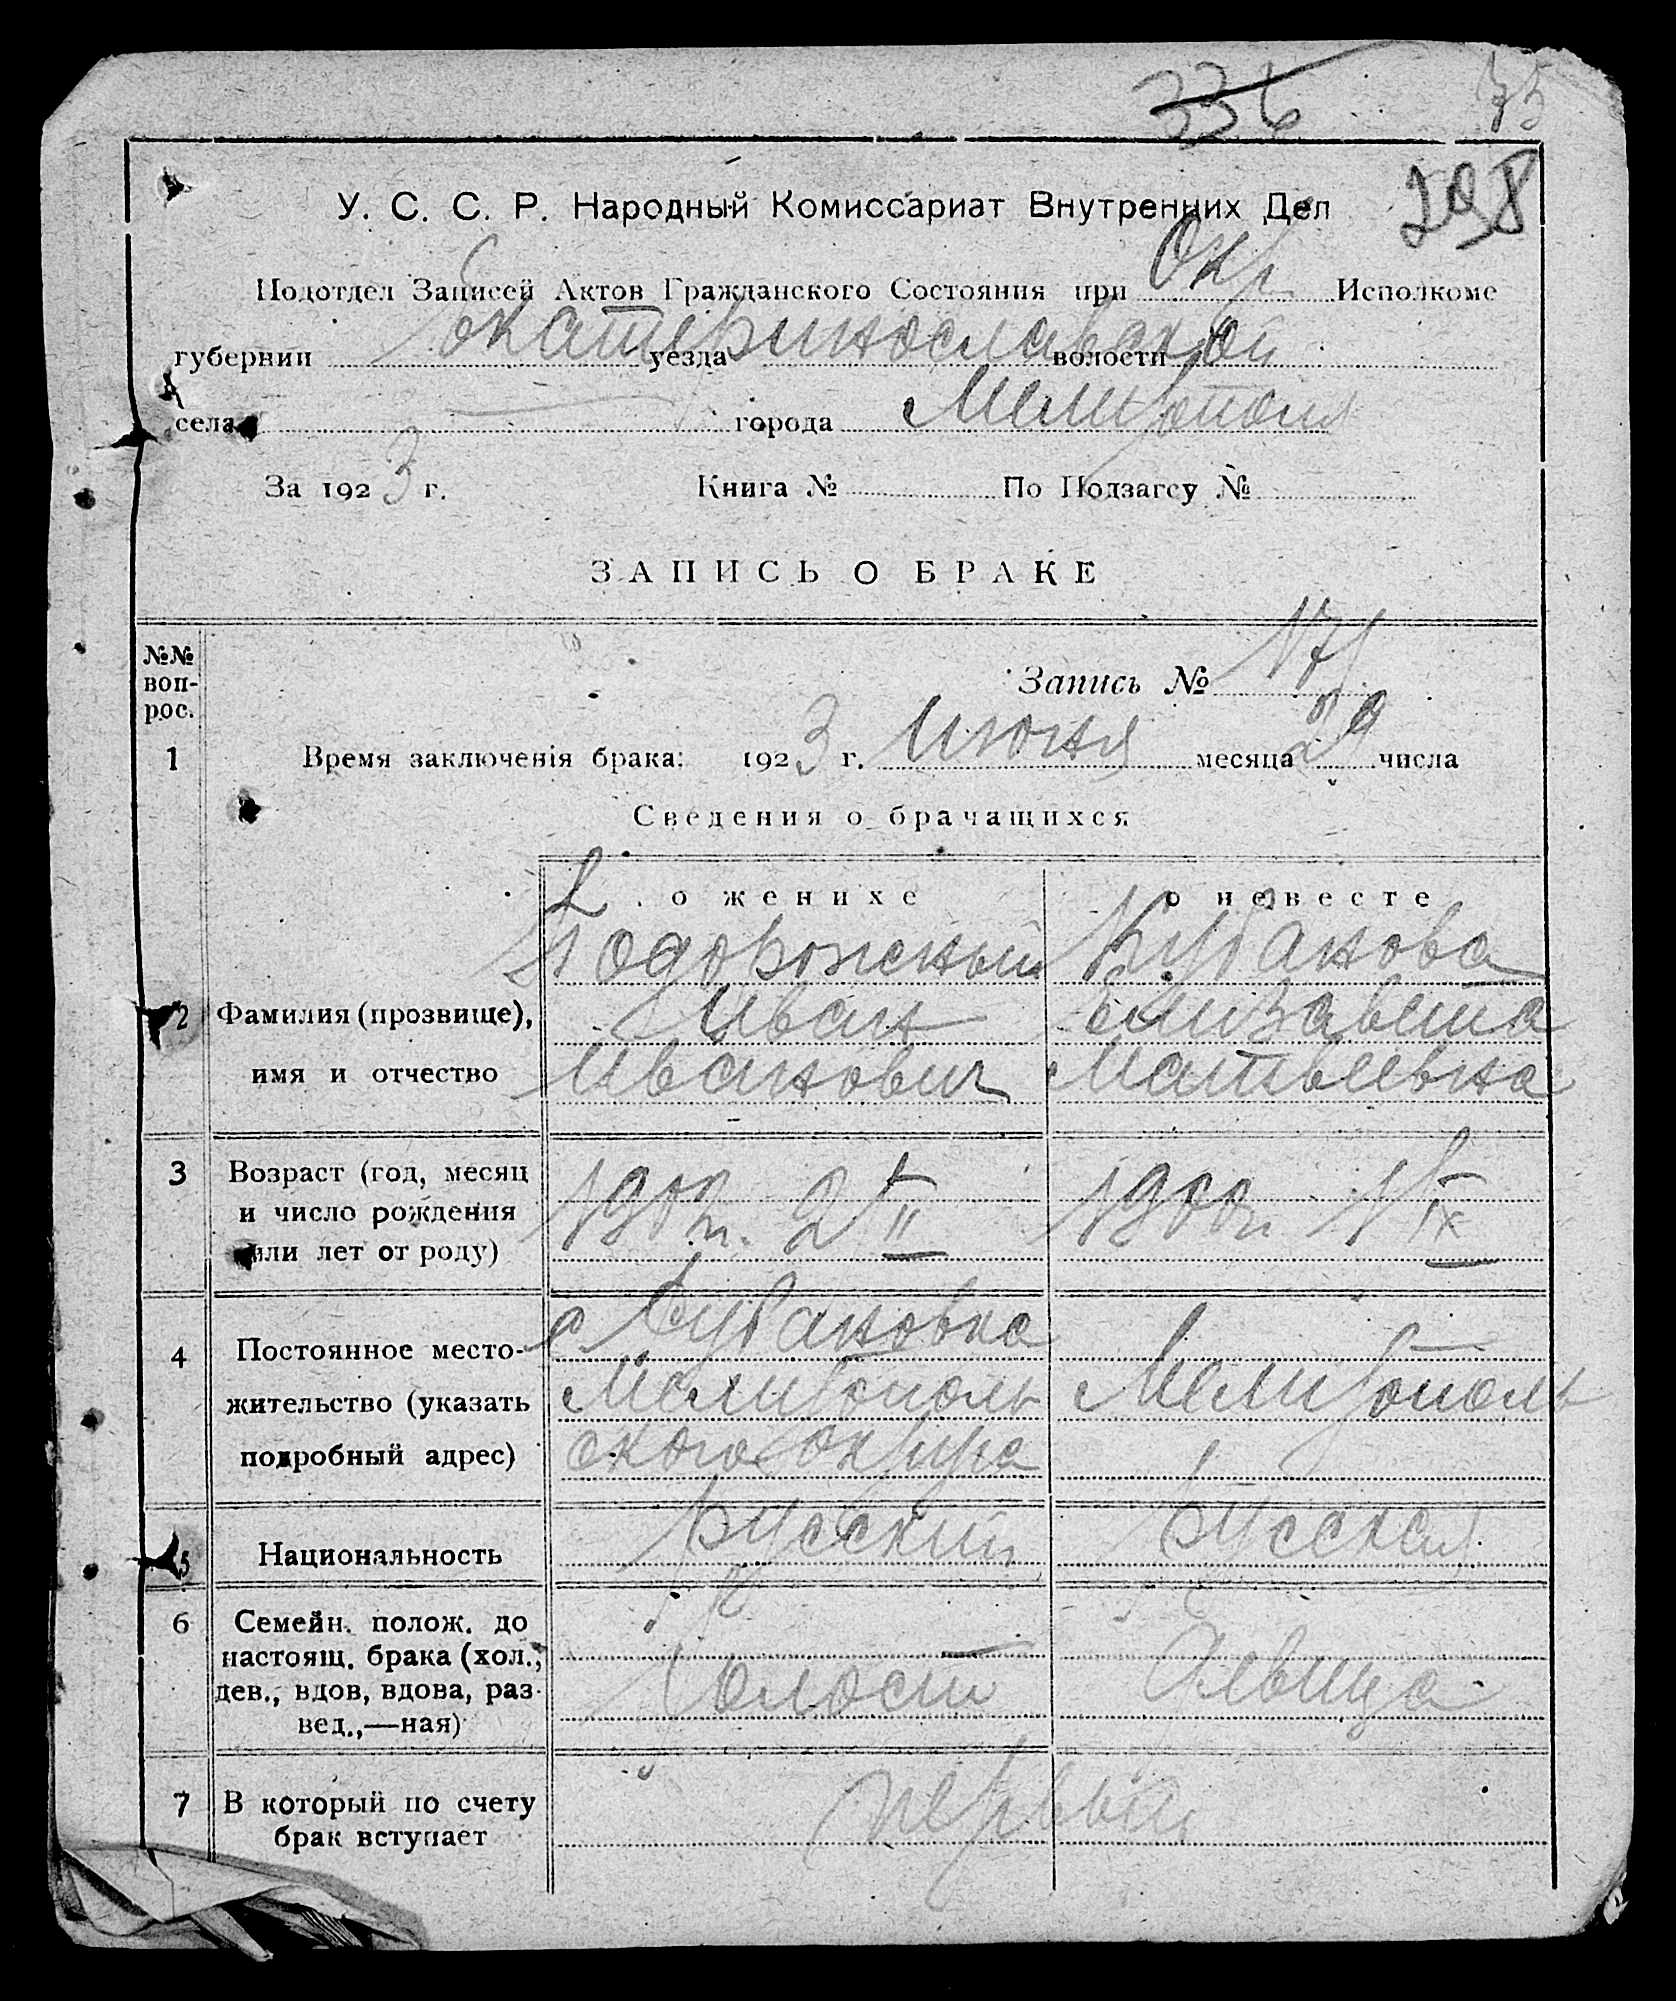 336 75
298
У. С. С. Р. Народный Комиссариат Внутренних Дел
Подотдел Записей Актов Гражданского Состояния при Окр Исполкоме
губернии Екатеринославской уезда волости
села города Мелитополя
За 1923 г. Книга № По Подзагсу №
ЗАПИСЬ О БРАКЕ
№№ воп-рос.
Запись №
1 Время заключенія брака: 1923 г. Июня месяца 29 числа
Сведения о брачащихся
о женихе о невесте
Подорожный Кубанова
2 Фамилия (прозвище), Иван Елизавета
имя и отчество Иванович Матвеевна
3 Возраст (год, месяц
и число рождения 2 II 1900 г. 1 IX
или лет от роду)
4 Постоянное место- с
жительство (указать Мелитополь Мелитополь
подробный адрес) ского округа
5 Национальность Русский Русская
6 Семейн. полож. до
настоящ. брака (хол.,
дев., вдов, вдова, раз- Холост Девица
вед.,—ная)
7 В который по счету первый
брак вступает